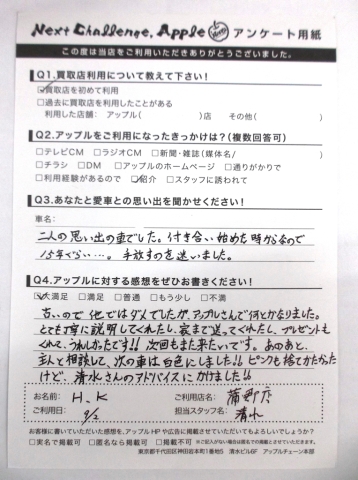 Next Challenge, Apple アンケート用紙
この度は当店をご利用いただきありがとうございました。
Q1.買取店利用について教えて下さい！
☑買取店を初めて利用
□過去に買取店を利用したことがある
利用した店舗： アップル( )店 その他( )
Q2.アップルをご利用になったきっかけは？(複数回答可)
□テレビCM □ラジオCM □新聞・雑誌(媒体名/ )
□チラシ □DM □アップルのホームページ □通りがかりで
□利用経験があるので ☑紹介 □スタッフに誘われて
Q3.あなたと愛車との思い出を聞かせください！
車名：
二人の思い出の車でした。付き合い始めた時からなので
15年ぐらい…。手放すのを迷いました。
Q4.アップルに対する感想をぜひお書きください！
☑大満足 □満足 □普通 □もう少し □不満
古いので他ではダメでしたが、アップルさんで何とかなりました。
とても丁寧に説明してくれたし、家まで送ってくれたし、プレゼントも
くれて、うれしかったです!! 次回もまた来たいです。あのあと、
主人と相談して、次の車は白色にしました!! ピンクも捨てがたかった
けど、清水さんのアドバイスにかけました!!
お名前： H.K ご利用店名： 蒲町店
ご利用日： 9/2 担当スタッフ名： 清水
お客様に書いていただいた感想を、アップルHPや広告に掲載させていただいてもよろしいでしょうか？
□実名で掲載可 □匿名なら掲載可 □掲載不可 ※ご記入がない場合は匿名での掲載とさせていただきます。
東京都千代田区神田岩本町1番地5 清水ビル6F アップルチェーン本部